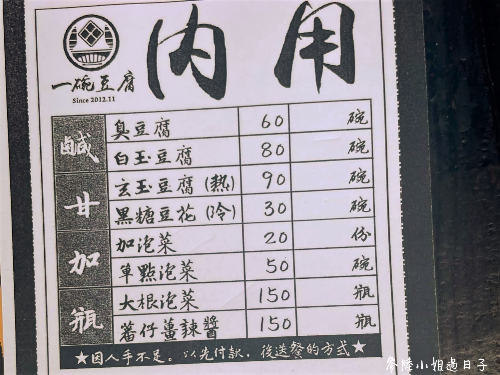 內用
一碗豆腐
Since 2012.11
鹹 臭豆腐 60 碗
白玉豆腐 80 碗
甘 玄玉豆腐(熱) 90 碗
黑糖豆花(冷) 30 碗
加 加泡菜 20 份
單點泡菜 50 碗
瓶 大根泡菜 150 瓶
薯仔薑辣醬 150 瓶
★因人手不足。以先付款,後送餐的方式★
參陸小姐過日子